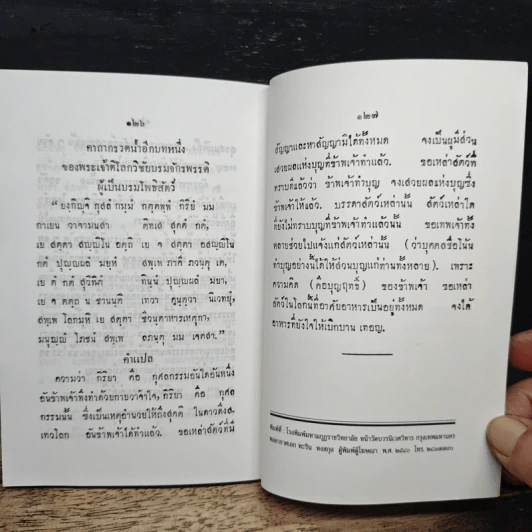 ๑๒๖
คาถากรวดน้ำอีกบทหนึ่ง
ของพระเจ้าติโลกวิชัยบรมจักรพรรดิ
ผู้เป็นบรมโพธิสัตว์
"ยงฺกิญฺจิ กุสลํ กมฺมํ กตฺตพฺพํ กิริยํ มม
กาเยน วาจามนสา ติทเส สุคตํ กตํ,
เย สตฺตา สญฺญิโน อตฺถิ เย จ สตฺตา อสญฺญิโน
กตํ ปุญฺญผลํ มยฺหํ สพฺเพ ภาคี ภวนฺตุ เต,
เย ตํ กตํ สุวิทิตํ ทินฺนํ ปุญฺญผลํ มยา,
เย จ ตตฺถ น ชานนฺติ เทวา คนฺตฺวา นิเวทยุํ,
สพฺเพ โลกมฺหิ เย สตฺตา ชีวนฺตาหารเหตุกา,
มนุญฺญํ โภชนํ สพฺเพ ลภนฺตุ มม เจตสา."
คำแปล
ความว่า กิริยา คือ กุศลกรรมอันใดอันหนึ่ง
อันข้าพเจ้าพึงทำด้วยกายวาจาใจ, กิริยา คือ กุศล
กรรมนั้น ซึ่งเป็นเหตุอำนวยให้ถึงสุคติ ในดาวดึงส-
เทวโลก อันข้าพเจ้าได้ทำแล้ว. ขอเหล่าสัตว์ที่มี
๑๒๗
สัญญาและหาสัญญามิได้ทั้งหมด จงเป็นผู้มีส่วน
เสวยผลแห่งบุญที่ข้าพเจ้าทำแล้ว. ขอเหล่าสัตว์ที่
ทราบดีแล้วว่า ข้าพเจ้าทำบุญ จงเสวยผลแห่งบุญซึ่ง
ข้าพเจ้าให้แล้ว. บรรดาสัตว์เหล่านั้น สัตว์เหล่าใด
ที่ยังไม่ทราบบุญที่ข้าพเจ้าทำแล้วนั้น ขอเทพเจ้าทั้ง
หลายช่วยไปแจ้งแก่สัตว์เหล่านั้น (ว่าบุคคลชื่อโน้น
ทำบุญอย่างนี้ได้ให้ส่วนบุญแก่ท่านทั้งหลาย). เพราะ
ความคิด (คือบุญฤทธิ์) ของข้าพเจ้า ขอเหล่า
สัตว์ในโลกนี้ที่อาศัยอาหารเป็นอยู่ทั้งหมด จงได้
อาหารที่ยังใจให้เบิกบาน เทอญ.
พิมพ์ที่ : โรงพิมพ์มหามกุฏราชวิทยาลัย หน้าวัดบวรนิเวศวิหาร กรุงเทพมหานคร
ผู้พิมพ์ผู้โฆษณา พ.ศ.